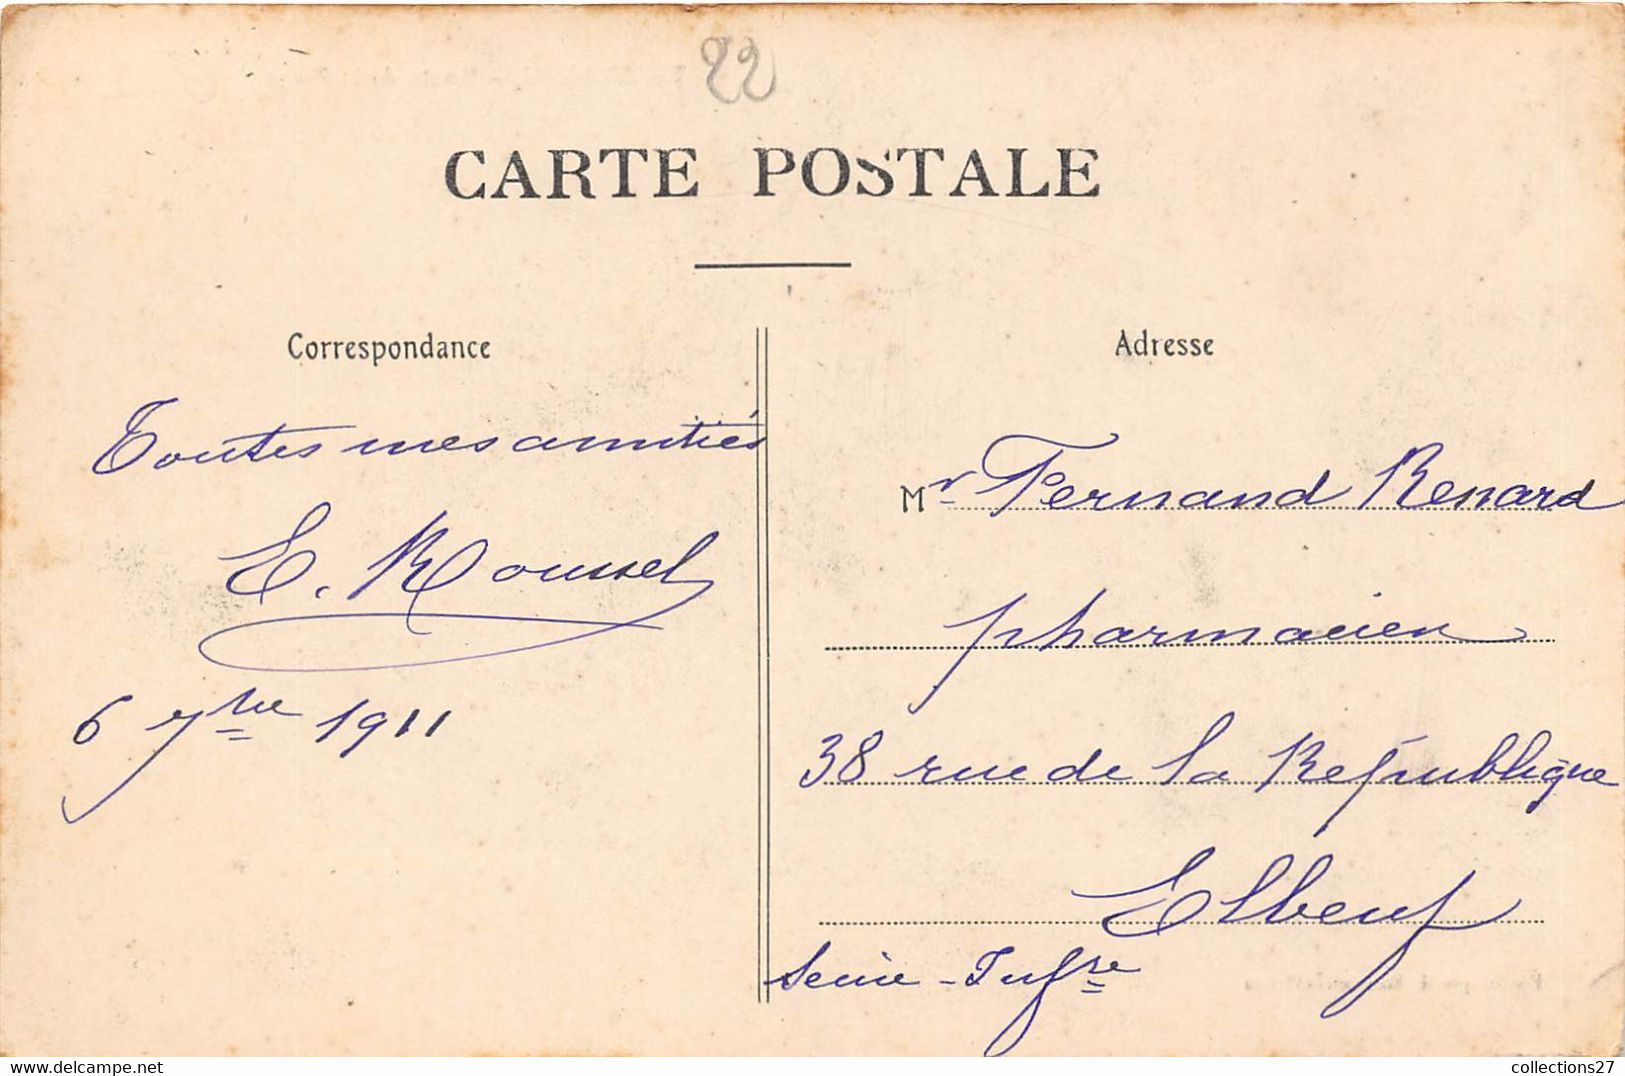 22
CARTE POSTALE
Correspondance
Toutes mes amitiés
E. Roussel
6 7bre 1911
Adresse
Mr Fernand Renard
pharmacien
38 rue de la République
Elbeuf
Seine-Infre
collections27